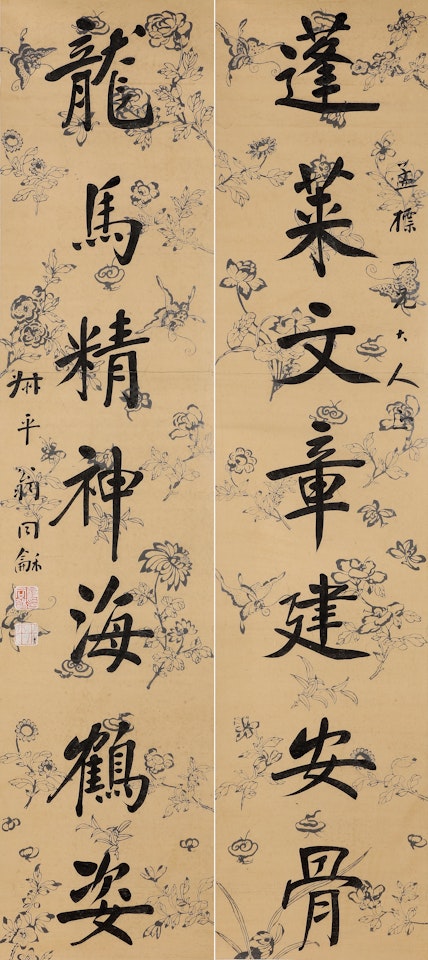 蓬萊文章建安骨
孟標一兄大人正
龍馬精神海鶴姿
叔平翁同龢